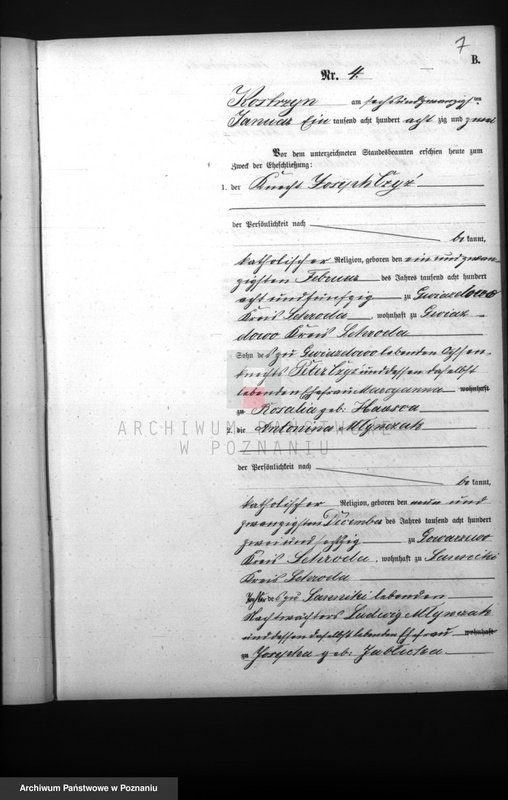 7
B.
Nr. 4.
Kostrzyn am sechsundzwanzigsten
Januar Ein tausend acht hundert achtzig und zwei
Vor dem unterzeichneten Standesbeamten erschien heute zum
Zweck der Eheschließung:
1. der Knecht Joseph Czyż
der Persönlichkeit nach
bekannt,
katholischer Religion, geboren den einundzwan-
zigsten Februar des Jahres tausend acht hundert
achtundfünfzig zu Gwiazdowo
Kreis Schroda, wohnhaft zu Gwiaz-
dowo Kreis Schroda
Sohn des zu Gwiazdowo lebenden Ochsen-
knechts Peter Czyż und dessen daselbst
lebenden Ehefrau Maryanna wohnhaft
zu Rosalia geb.
2. die Antonina Mlynczak
ARCHIWUM PAŃSTWOWE
W POZNANIU
der Persönlichkeit nach
bekannt,
katholischer Religion, geboren den neun und
zwanzigsten December des Jahres tausend acht hundert
zwei und sechzig zu Gowarzewo
Kreis Schroda, wohnhaft zu Sanniki
Kreis Schroda
Tochter des zu Sanniki lebenden
Nachtwächters Ludwig Mlynczak
und dessen daselbst lebenden Ehefrau wohnhaft
zu Josepha geb.
Archiwum Państwowe w Poznaniu